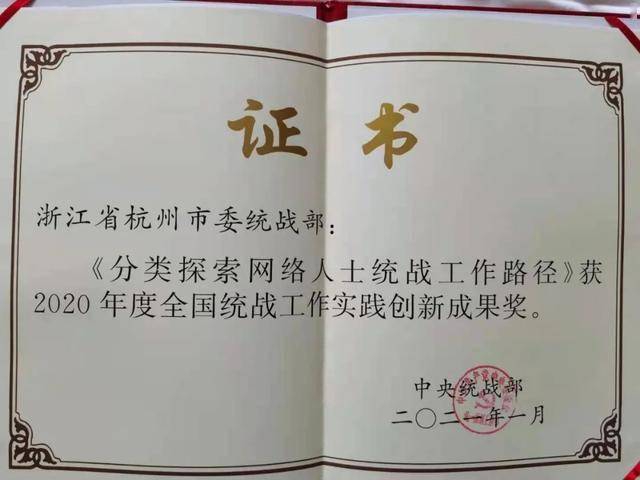 证书
浙江省杭州市委统战部：
《分类探索网络人士统战工作路径》获
2020年度全国统战工作实践创新成果奖。
中央统战部
二〇二一年一月